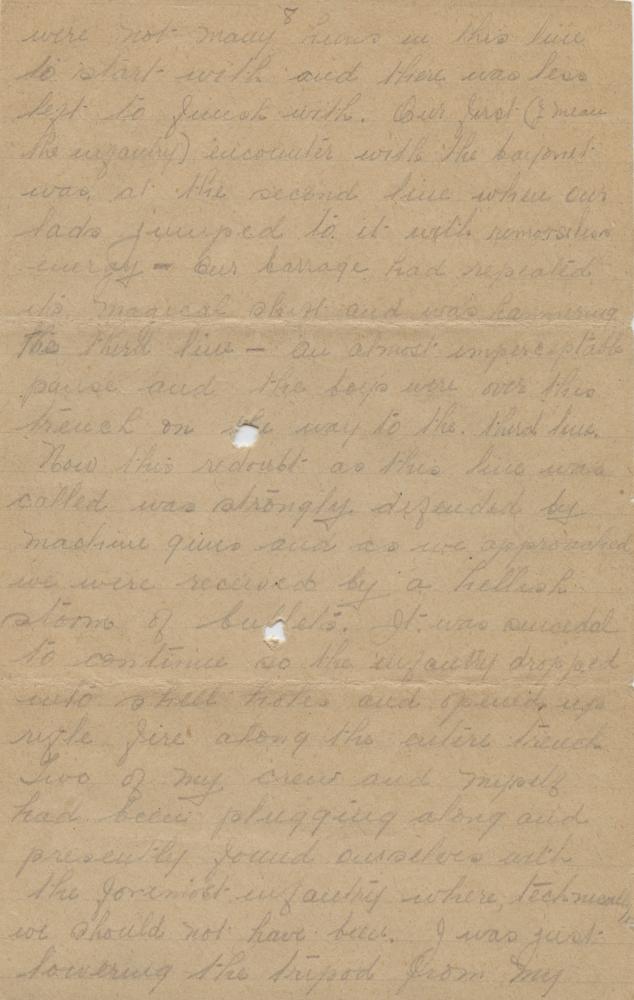 8
were not many huns in this line
to start with and there was less
left to finish with. Our first (I mean
the infantry) encounter with the bayonet
was, at the second line when our
lads jumped to it with remorseless
energy - Our barrage had repeated
its magical shift and was hammering
the third line - an almost imperceptable
pause and the boys were over this
trench on the way to the. third line.
Now this redoubt as this line was
called was strongly defended by
machine guns and as we approached
we were received by a hellish
storm of bullets. It was suicidal
to continue so the infantry dropped
into shell holes and opened up
rifle fire along the entire trench
Two of my crew and myself
had been plugging along and
presently found ourselves with
the foremost infantry where, technically
we should not have been. I was just
lowering the tripod from my